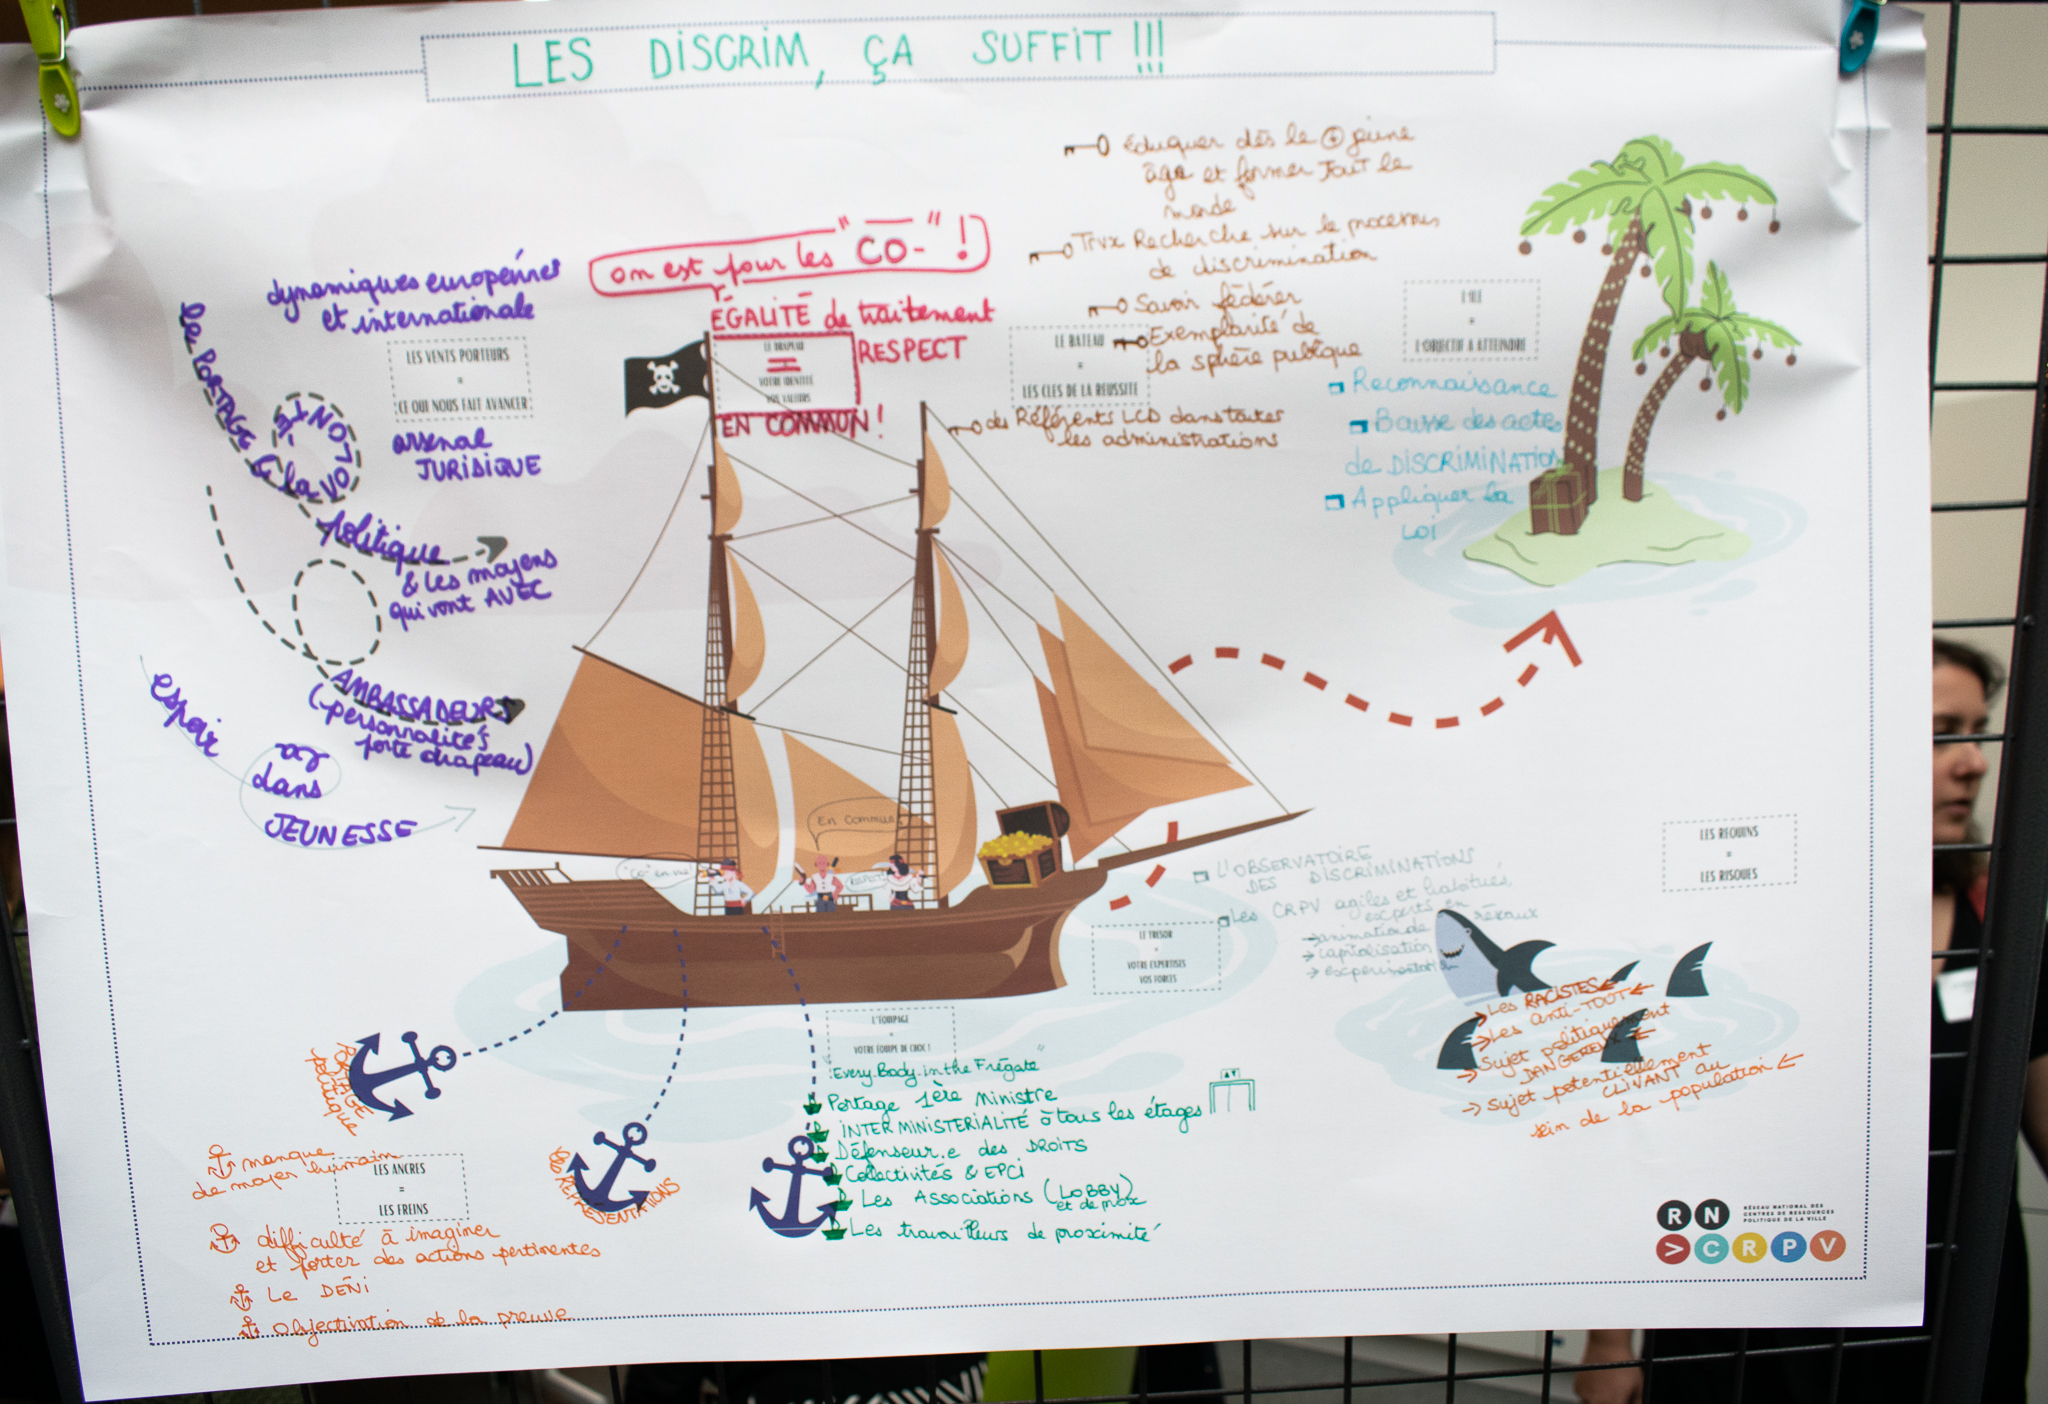 LES DISCRIM, ÇA SUFFIT !!!
dynamiques européennes
et internationale
le PORTAGE & la VOLONTÉ
politique
& les moyens
qui vont AVEC
LES VENTS PORTEURS
=
CE QUI NOUS FAIT AVANCER
arsenal
JURIDIQUE
AMBASSADEURS
(personnalités
porte drapeau)
espoir
dans
JEUNESSE
on est pour les "CO-" !
ÉGALITÉ de traitement
RESPECT
LE DRAPEAU
=
VOTRE IDENTITÉ
VOS VALEURS
EN COMMUN !
LE BATEAU
=
LES CLES DE LA REUSSITE
éduquer dès le + jeune
âge et former TOUT le
monde
Trvx Recherche sur le processus
de discrimination
Savoir fédérer
Exemplarité de
la sphère publique
des Référents LCD dans toutes
les administrations
L'ILE
=
L'OBJECTIF A ATTEINDRE
Reconnaissance
Baisse des actes
de DISCRIMINATION
Appliquer la
LOI
En commun
"CO" en vie!
RESPECT!
L'OBSERVATOIRE
DES DISCRIMINATIONS
Les CRPV agiles et habitués,
experts en réseaux
→ animation de
→ capitalisation
→ expérimentation
LE TRESOR
=
VOTRE EXPERTISES
VOS FORCES
LES REQUINS
=
LES RISQUES
→ Les RACISTES ←
→ Les anti-TOUT ←
→ Sujet politiquement
DANGEREUX ←
→ Sujet potentiellement
CLIVANT au
sein de la population ←
L'ÉQUIPAGE
=
VOTRE ÉQUIPE DE CHOC !
"Every Body in the Frégate"
Portage 1ère Ministre
INTERMINISTERIALITÉ à tous les étages
Défenseur.e des DROITS
Collectivités & EPCI
Les Associations (LOBBY)
et de prox
Les travailleurs de proximité
PORTAGE
politique
les REPRÉSENTATIONS
LES ANCRES
=
LES FREINS
manque
de moyen humain
difficulté à imaginer
et porter des actions pertinentes
Le DÉNI
Objectivation de la preuve
RN
>CRPV
RÉSEAU NATIONAL DES
CENTRES DE RESSOURCES
POLITIQUE DE LA VILLE